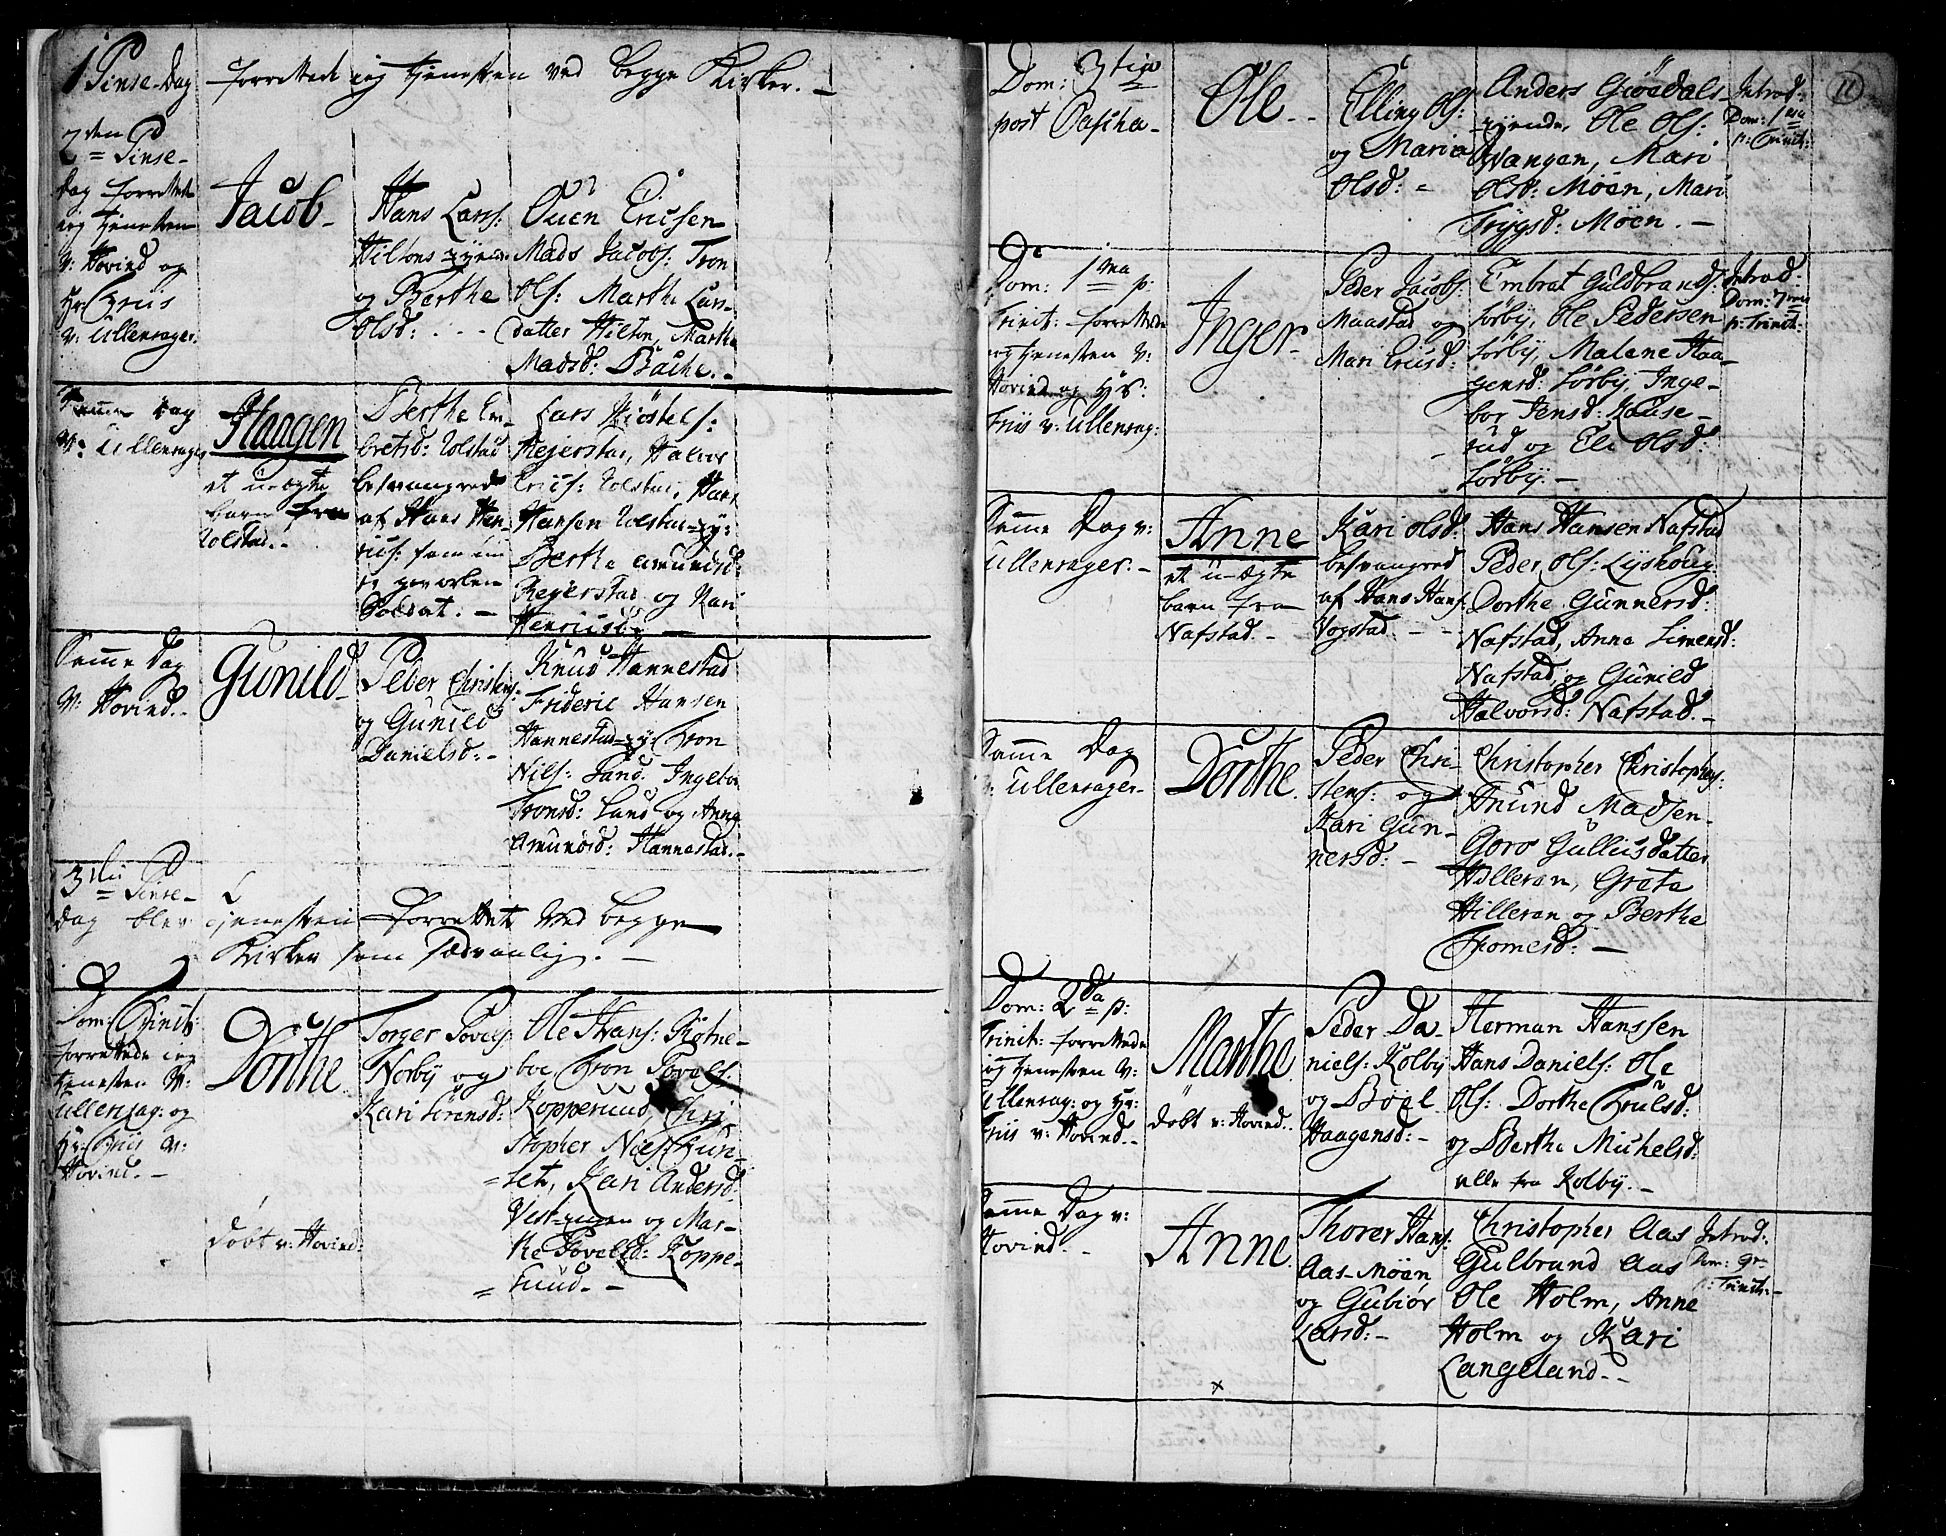 1 Pinse-Dag forrettede jeg tjenesten ved begge Kirker. -
2den Pinse-
Dag forrettede
jeg tjenesten
v: Hovind og
Hr: Friis
v: Ullensager.
Jacob -
Hans Lars:
Hiltons-eyende
og Berthe
Olsd: . - -
Ouen Ericsen
Mads Jacobs: Tron
Ols: Marthe Lars-
datter Hilton, Marthe
Madsd: Bache. -
Samme Dag
v: Ullensager
Haagen
et uægte
barn fra
Tolstad. -
Berthe Em-
bretsd: Tolstad
besvangred
af Hans Hen-
rics: som nu
er geworben
Soldat. -
Lars Kiøstels:
Rejerstad, Halvor
Erics: Tolstad, Hans
Hansen Tolstad-ey:
Berthe Amundsd:
Rejerstad og Kari
Henricsd: -
Samme Dag
v: Hovind. -
Gunild -
Peder Christens:
og Gunild
Danielsd: -
Knud Hannestad
Frideric Hansen
Hannestad-ey: Tron
Nils: Sand, Ingebor
Tronsd: Sand og Anne
Amundsd: Hannestad. -
3die Pinse-
Dag blev tjenesten forrettet ved begge
Kirker som sædvanlig. -
Dom: Trinit:
forrettede jeg
tjenesten v:
Ullensag: og
Hr: Friis v:
Hovind. -
Dorthe.
døbt v: Hovind:
Torger Povels:
Norby og
Kari Sørensd:
Ole Hans: Røtne-
boe, Tron Povels:
Kopperuud, Chri-
stopher Niels: Fun-
set, Kari Andersd:
Vest-engen og Mar-
the Povelsd: Koppe-
ruud. -
11
Dom: 3tia
post Pascha -
Ole -
Elling Ols:
og Maria
Olsd: -
Anders Giødals-
eyende, Ole Ols:
Wangen, Mari
Olsd: Moen, Mari
Trygsd: Moen. -
Introd:
Dom: 1ma
p: Trinit:
Dom: 1ma p:
Trinit: forrettede
jeg tjenesten v:
Hovind og Hr:
Friis v: Ullensag:
Inger -
Peder Jacobs:
Maastad og
Mari Ericsd:
Embret Guldbrands:
Lørby, Ole Pedersen
Lørby, Malene Haa-
gensd: Lørby, Inge-
bor Jensd: Kause-
rud og Eli Olsd:
Lørby. -
Introd:
Dom: 7ma
p: Trinit:
Samme Dag v:
Ullensager. -
Anne
et u-ægte
barn fra
Nafstad. -
Kari Olsd:
besvangred
af Hans Hans:
Vogstad. - -
Hans Hansen Nafstad
Peder Ols: Lyshoug
Dorthe Gunnersd:
Nafstad, Anne Simensd:
Nafstad, og Gunild
Halvorsd: Nafstad. -
Samme Dag
v: Ullensager -
Dorthe.
Peder Chri-
stens: og
Kari Gun-
nersd: -
Christopher Christophers:
Anund Madsen
Goro Gulliusdatter
Hilleran, Grete
Hilleran og Berthe
Tromesd: -
Dom: 2da p:
Trinit: forrettede
jeg tjenesten v:
Ullensag: og Hr:
Friis v: Hovind. -
Marthe.
døbt v: Hovind.
Peder Da-
niels: Kolby
og Boel
Haagensd: -
Herman Hanssen
Hans Daniels: Ole
Ols: Dorthe Trulsd:
og Berthe Michelsd:
alle fra Kolby. -
Samme Dag v:
Hovind. -
Anne.
Thorer Hans:
Aas-Moen
og Gubiør
Larsd: -
Christopher Aas
Gulbrand Aas
Ole Holm, Anne
Holm og Kari
Langeland. -
Introd:
Dom: 9
p: Trinit: -